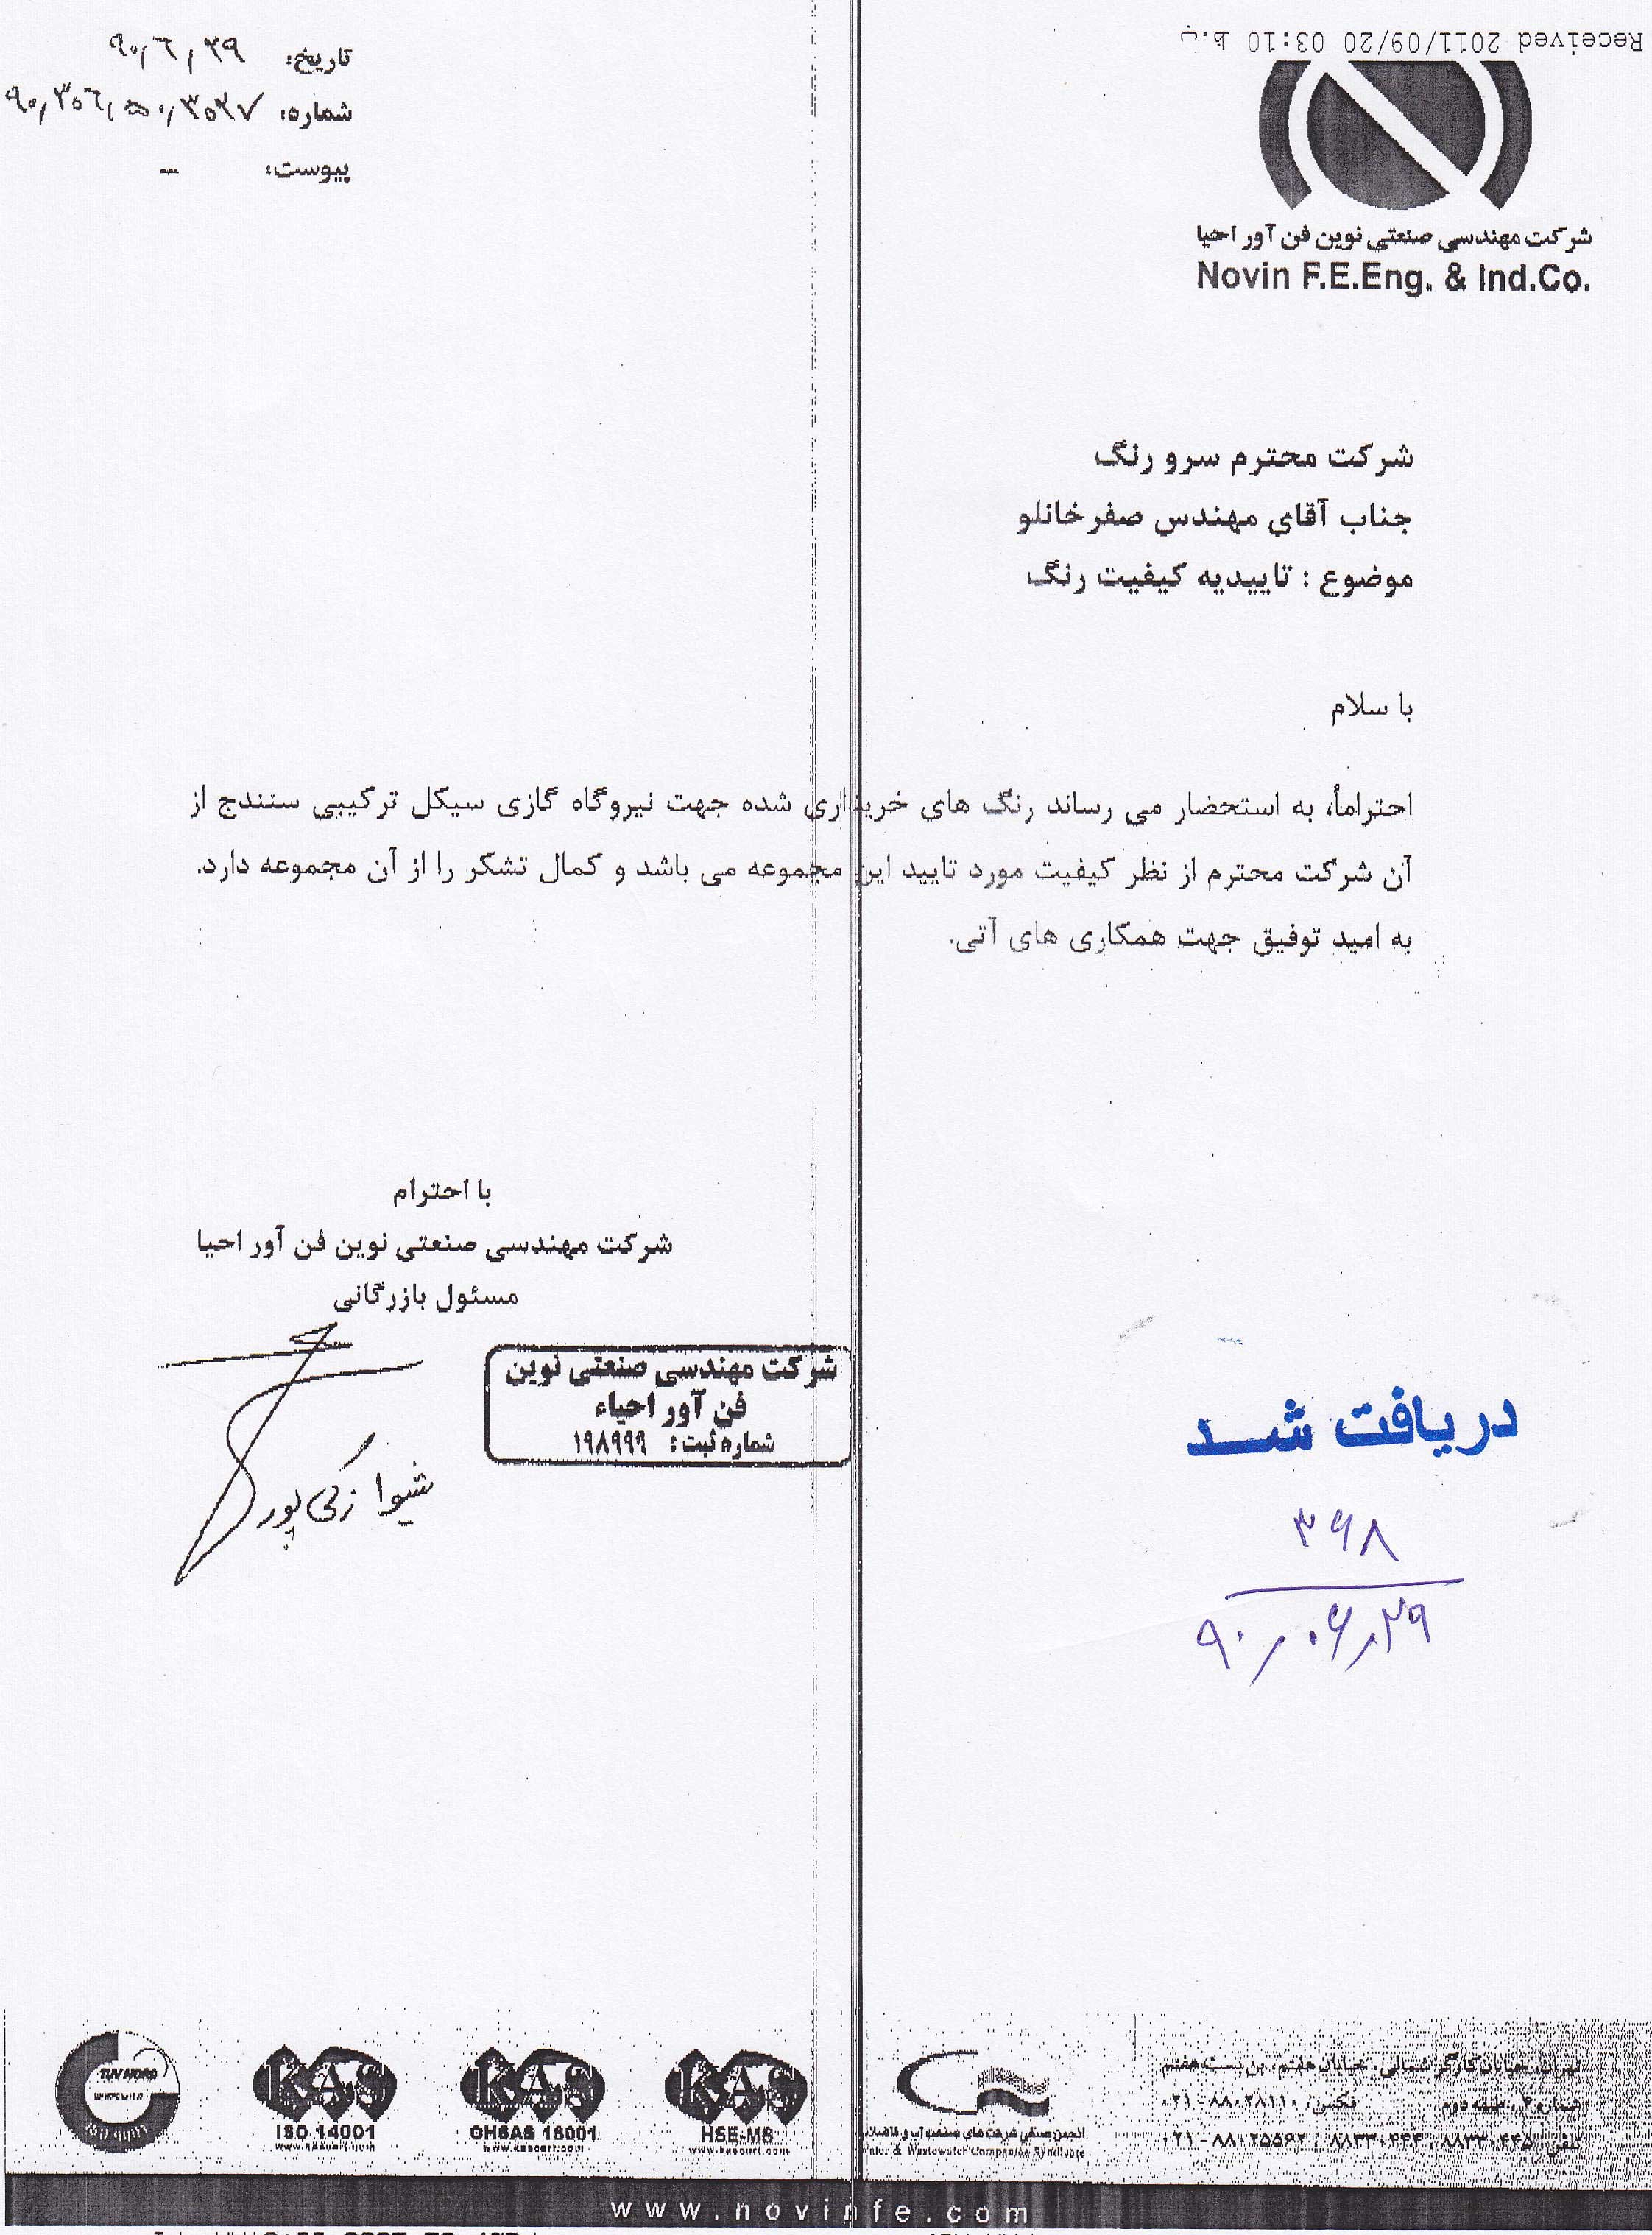 Received 2011/09/20 03:10 ب.ظ
تاریخ: ۹۰,۶,۲۹
شماره:
پیوست: –
شرکت مهندسی صنعتی نوین فن آور احیا
Novin F.E.Eng. & Ind.Co.
شرکت محترم سرو رنگ
جناب آقای مهندس صفرخانلو
موضوع : تاییدیه کیفیت رنگ
با سلام
احتراماً، به استحضار می رساند رنگ های خریداری شده جهت نیروگاه گازی سیکل ترکیبی سنندج از
آن شرکت محترم از نظر کیفیت مورد تایید این مجموعه می باشد و کمال تشکر را از آن مجموعه دارد.
به امید توفیق جهت همکاری های آتی.
با احترام
شرکت مهندسی صنعتی نوین فن آور احیا
مسئول بازرگانی
شرکت مهندسی صنعتی نوین
فن آور احیاء
شماره ثبت: ۱۹۸۹۹۹
شیوا زکی پور
دریافت شد
۳۶۸
۹۰,۰۶,۲۹
تهران، خیابان کارگر شمالی، خیابان هفتم، بن بست هفتم
شماره ۴، طبقه دوم فکس: ۰۲۱-۸۸۰۲۸۱۱۰
تلفن: ۸۸۳۳۰۴۴۵، ۸۸۳۳۰۴۴۴، ۰۲۱-۸۸۰۲۵۵۶۲
TUV NORD
KAS
ISO 14001
KAS
OHSAS 18001
KAS
HSE-MS
انجمن صنفی شرکت های صنعت آب و فاضلاب
& Wastewater Companies Syndicate
www.novinfe.com